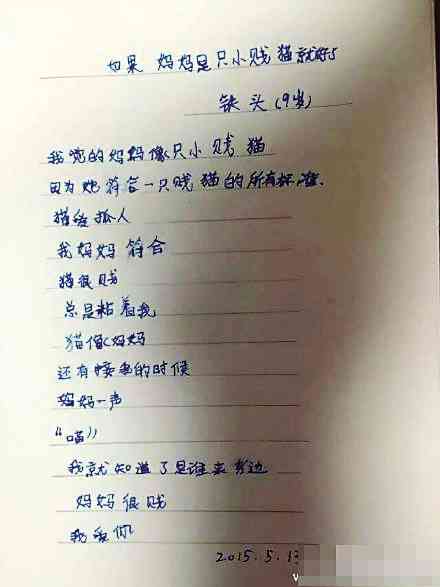 如果 妈妈是只小贱猫就好了
铁头(9岁)
我觉的妈妈像只小贱猫
因为她符合一只贱猫的所有标准.
猫爱抓人
我妈妈符合
猫很贱
总是粘着我
猫像妈妈
还有接电的时候
妈妈一声
“喵”
我就知道了是谁来旁边
妈妈很贱
我爱你
2015.5.13